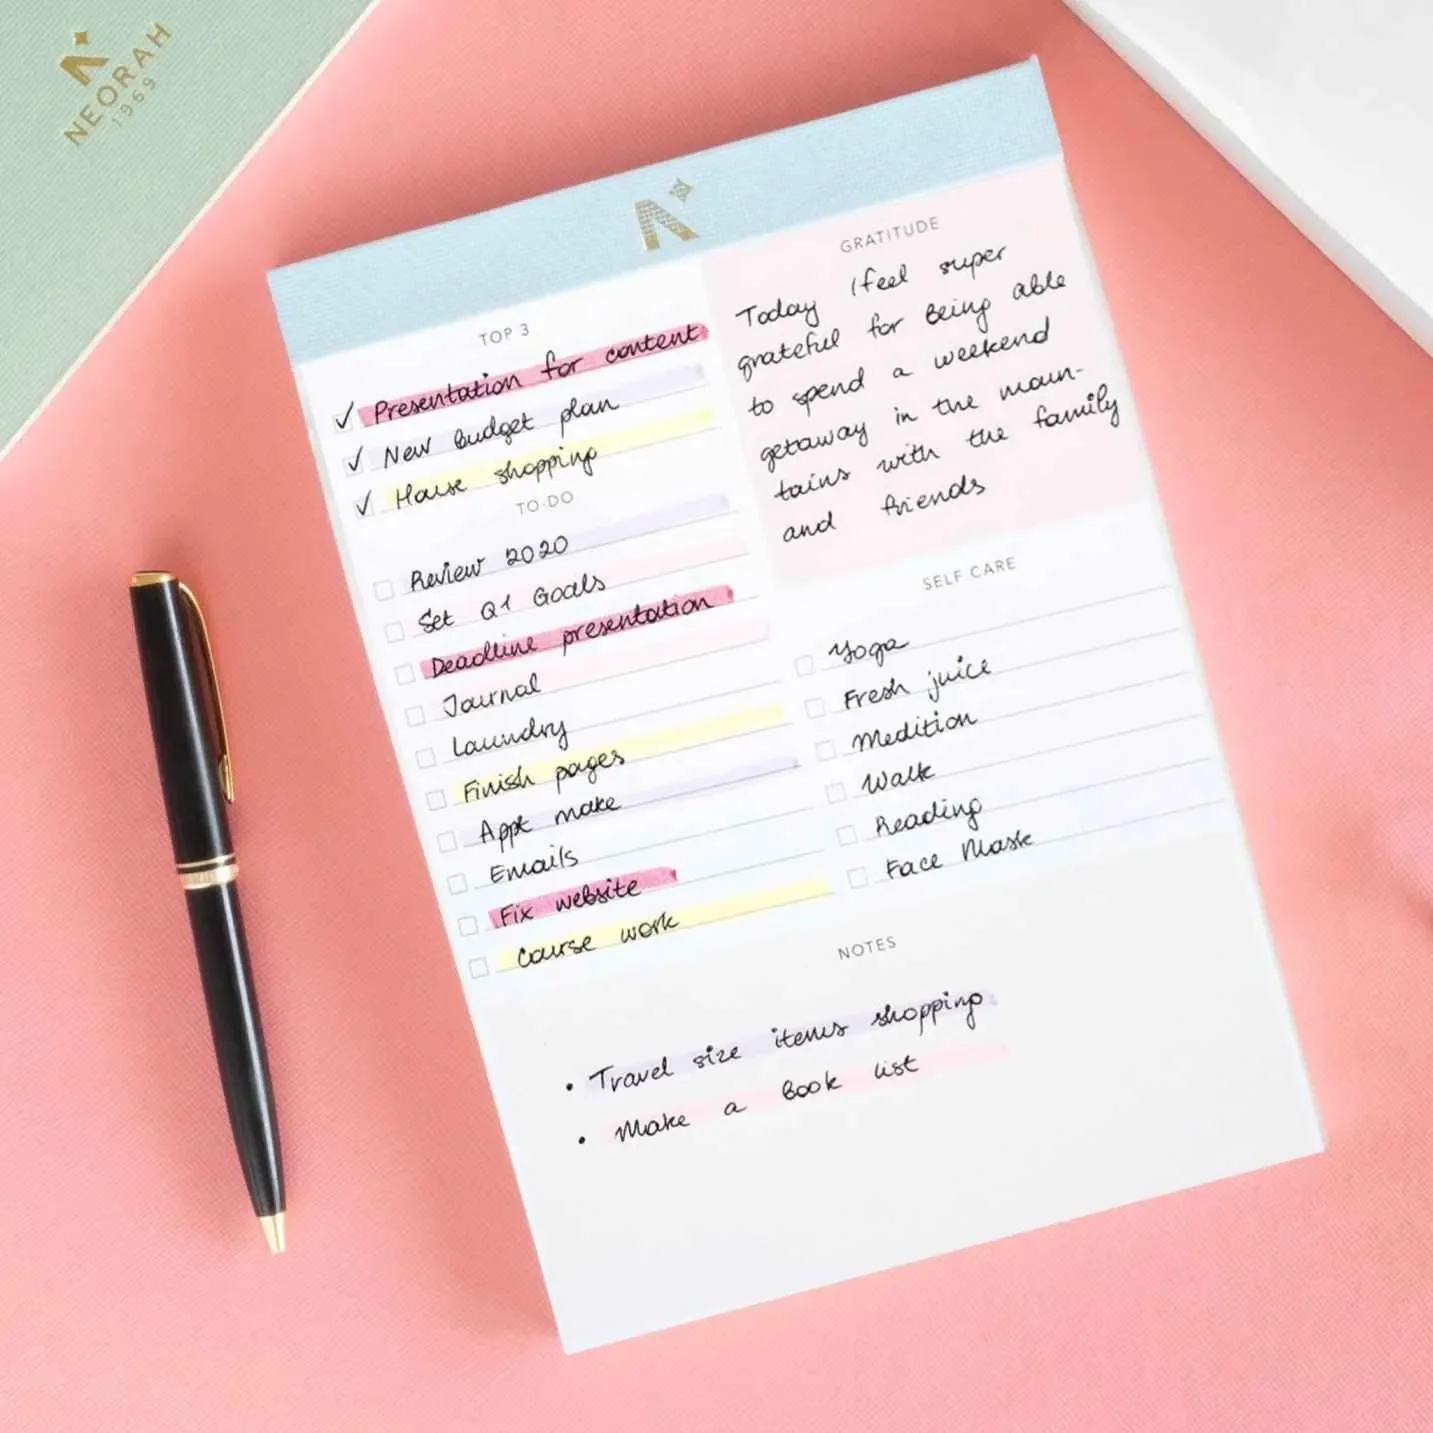 NEORAH
1969
TOP 3
Presentation for content
New Budget plan
House shopping
TO-DO
Review 2020
Set Q1 Goals
Deadline presentation
Journal
Laundry
Finish pages
Appt make
Emails
Fix website
Course work
GRATITUDE
Today I feel super
grateful for Being able
to spend a weekend
getaway in the moun-
tains with the family
and friends
SELF CARE
Yoga
Fresh juice
Medition
Walk
Reading
Face Mask
NOTES
• Travel size items shopping
• Make a Book list